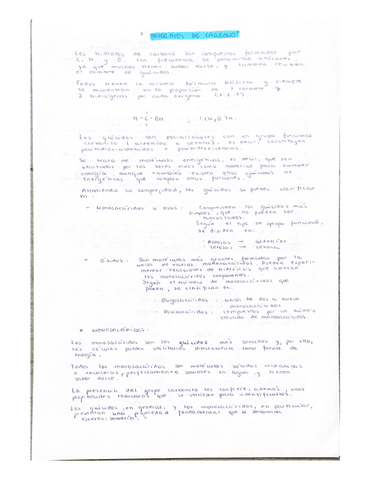 HIDRATOS DE CARBONO
Los hidratos de carbono son compuestos formados por
C, H y O. Con frecuencia se denominan azúcares,
ya que muchos tienen sabor dulce, y también reciben
el nombre de glúcidos.
Todos tienen la misma fórmula empírica y siempre
se encuentran en la proporción de 1 carbono y
2 hidrógenos por cada oxígeno (1:2:1)
H-C-OH (CH₂O)n
Los glúcidos son polialcoholes con un grupo funcional
carbonilo (aldehídos o cetonas), es decir, constituyen
polihidroxialdehídos o polihidroxicetonas.
Se trata de moléculas energéticas, es decir, que son
utilizadas por los seres vivos como material para obtener
energía, aunque también existen otros glúcidos no
energéticos que cumplen otras funciones.
Atendiendo su complejidad, los glúcidos se pueden clasificar
en:
- Monosacáridos u osas: Comprenden los glúcidos más
simples, que no pueden ser
hidrolizados.
Según el tipo de grupo funcional,
se dividen en:
Aldosas → aldehídos
Cetosas → cetona
- Ósidos: Son moléculas más grandes formadas por la
unión de varios monosacáridos. Pueden experi-
mentar reacciones de hidrólisis que liberan
los monosacáridos componentes.
Según el número de monosacáridos que
poseen, se clasifican en:
Oligosacáridos: unión de dos a nueve
monosacáridos
Polisacáridos: compuestos por un número
elevado de monosacáridos.
MONOSACÁRIDOS:
Los monosacáridos son los glúcidos más sencillos y, por ello,
las células pueden utilizarlos directamente como fuente de
energía.
Todos los monosacáridos son moléculas sólidas cristalinas
e incoloras, perfectamente solubles en agua y tienen
sabor dulce.
La presencia del grupo carbonilo les confiere, además, unas
propiedades reductoras que se utilizan para identificarlos.
Los glúcidos, en general, y los monosacáridos, en particular,
presentan una propiedad fundamental que se denomina